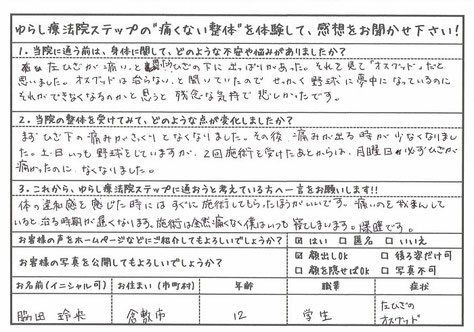 ゆらし療法院ステップの"痛くない整体"を体験して、感想をお聞かせ下さい！
1. 当院に通う前は、身体に関して、どのような不安や悩みがありましたか？
左ひざが痛い、と ひざの下に出っぱりがあった。それを見て"オスグッド"だと
思いました。オスグッドは治らない、と聞いていたので せっかく野球に夢中になっているのに
それができなくなるのかと思うと 残念な気持で悲しかったです。
2. 当院の整体を受けてみて、どのような点が変化しましたか？
まず ひざ下の痛みがさっくりとなくなりました。その後、痛みが出る時が少なくなりまし
た。土日いつも野球をしていますが、2回施術を受けたあとからは、月曜日か必ずひざが
痛かったのに、なくなりました。
3. これから、ゆらし療法院ステップに通おうと考えている方へ一言をお願いします!!
体の違和感を感じた時には すぐに施術してもらったほうがいいです。痛いのをがまんして
いると治る時期が遅くなります。施術は全然痛くなく僕はいつも寝てしまいます。保証です。
お客様の声をホームページなどにご紹介してもよろしいでしょうか？ ☑ はい □ 匿名 □ いいえ
お客様の写真を公開してもよろしいでしょうか？ ☑ 顔出しOK □ 後ろ姿だけ可
□ 顔を隠せばOK □ 写真不可
お名前(イニシャル可) お住まい(市町村) 年齢 職業 症状
脇田 玲央 倉敷市 12 学生 左ひざの
オスグッド